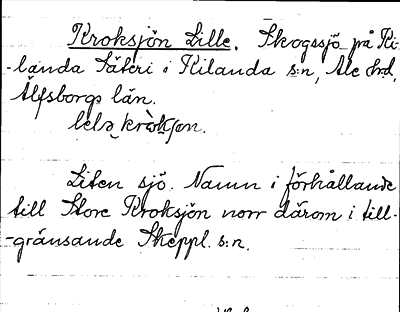 Kroksjön Lille. Skogssjö på Ki-
-landa Säteri i Kilanda s:n, Ale hrd,
Älfsborgs län.
lelə kròksɔn.
Liten sjö. Namn i förhållande
till Store Kroksjön norr därom i till-
-gränsande Skeppl. s:n.